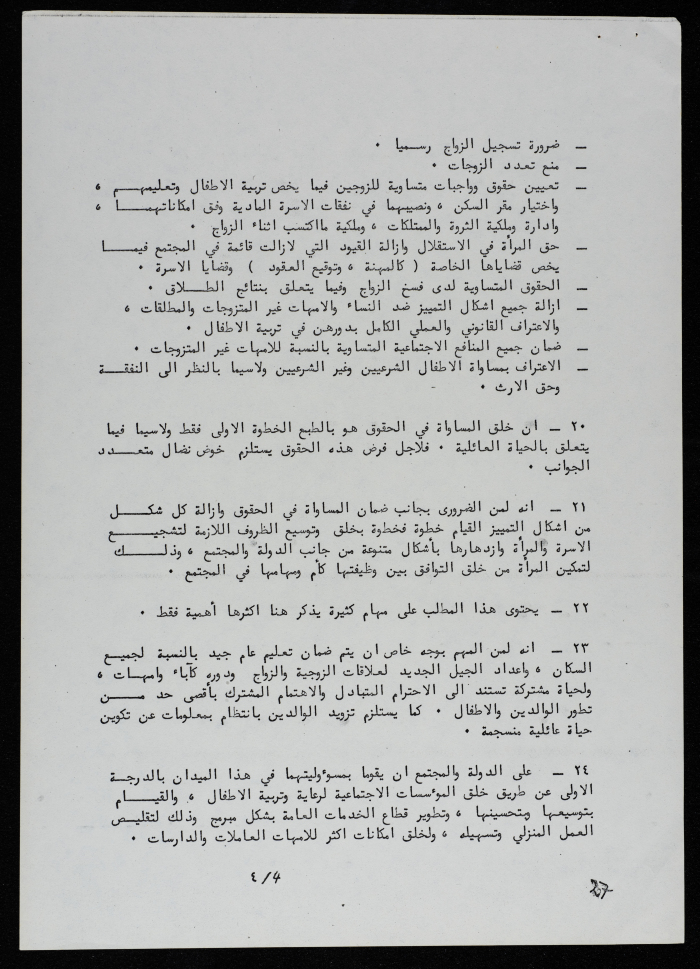 ـ ضرورة تسجيل الزواج رسميا ٠
ـ منع تعدد الزوجات ٠
ـ تعيين حقوق وواجبات متساوية للزوجين فيما يخص تربية الاطفال وتعليمهم ،
واختيار مقر السكن ، ونصيبهما في نفقات الاسرة المادية وفق امكاناتهما ،
وادارة وملكية الثروة والممتلكات ، وملكية مااكتسب اثناء الزواج ٠
ـ حق المرأة في الاستقلال وازالة القيود التي لازالت قائمة في المجتمع فيما
يخص قضاياها الخاصة ( كالمهنة ، وتوقيع العقود ) وقضايا الاسرة ٠
ـ الحقوق المتساوية لدى فسخ الزواج وفيما يتعلق بنتائج الطلاق ٠
ـ ازالة جميع اشكال التمييز ضد النساء والامهات غير المتزوجات والمطلقات ،
والاعتراف القانوني والعملي الكامل بدورهن في تربية الاطفال ٠
ـ ضمان جميع المنافع الاجتماعية المتساوية بالنسبة للامهات غير المتزوجات ٠
ـ الاعتراف بمساواة الاطفال الشرعيين وغير الشرعيين ولاسيما بالنظر الى النفقة
وحق الارث ٠
٢٠ ـ ان خلق المساواة في الحقوق هو بالطبع الخطوة الاولى فقط ولاسيما فيما
يتعلق بالحياة العائلية ٠ فلاجل فرض هذه الحقوق يستلزم خوض نضال متعدد
الجوانب ٠
٢١ ـ انه لمن الضرورى بجانب ضمان المساواة في الحقوق وازالة كل شكل
من اشكال التمييز القيام خطوة فخطوة بخلق وتوسيع الظروف اللازمة لتشجيع
الاسرة والمرأة وازدهارها بأشكال متنوعة من جانب الدولة والمجتمع ، وذلك
لتمكين المرأة من خلق التوافق بين وظيفتها كأم ومهامها في المجتمع ٠
٢٢ ـ يحتوى هذا المطلب على مهام كثيرة يذكر هنا اكثرها أهمية فقط ٠
٢٣ ـ انه لمن المهم بوجه خاص ان يتم ضمان تعليم عام جيد بالنسبة لجميع
السكان ، واعداد الجيل الجديد لعلاقات الزوجية والزواج ودوره كآباء وامهات ،
ولحياة مشتركة تستند الى الاحترام المتبادل والاهتمام المشترك بأقصى حد من
تطور الوالدين والاطفال ٠ كما يستلزم تزويد الوالدين بانتظام بمعلومات عن تكوين
حياة عائلية منسجمة ٠
٢٤ ـ على الدولة والمجتمع ان يقوما بمسوؤليتهما في هذا الميدان بالدرجة
الاولى عن طريق خلق الموؤسسات الاجتماعية لرعاية وتربية الاطفال ، والقيام
بتوسيعها وبتحسينها ، وتطوير قطاع الخدمات العامة بشكل مبرمج وذلك لتقليص
العمل المنزلي وتسهيله ، ولخلق امكانات اكثر للامهات العاملات والدارسات ٠
٤/4
27